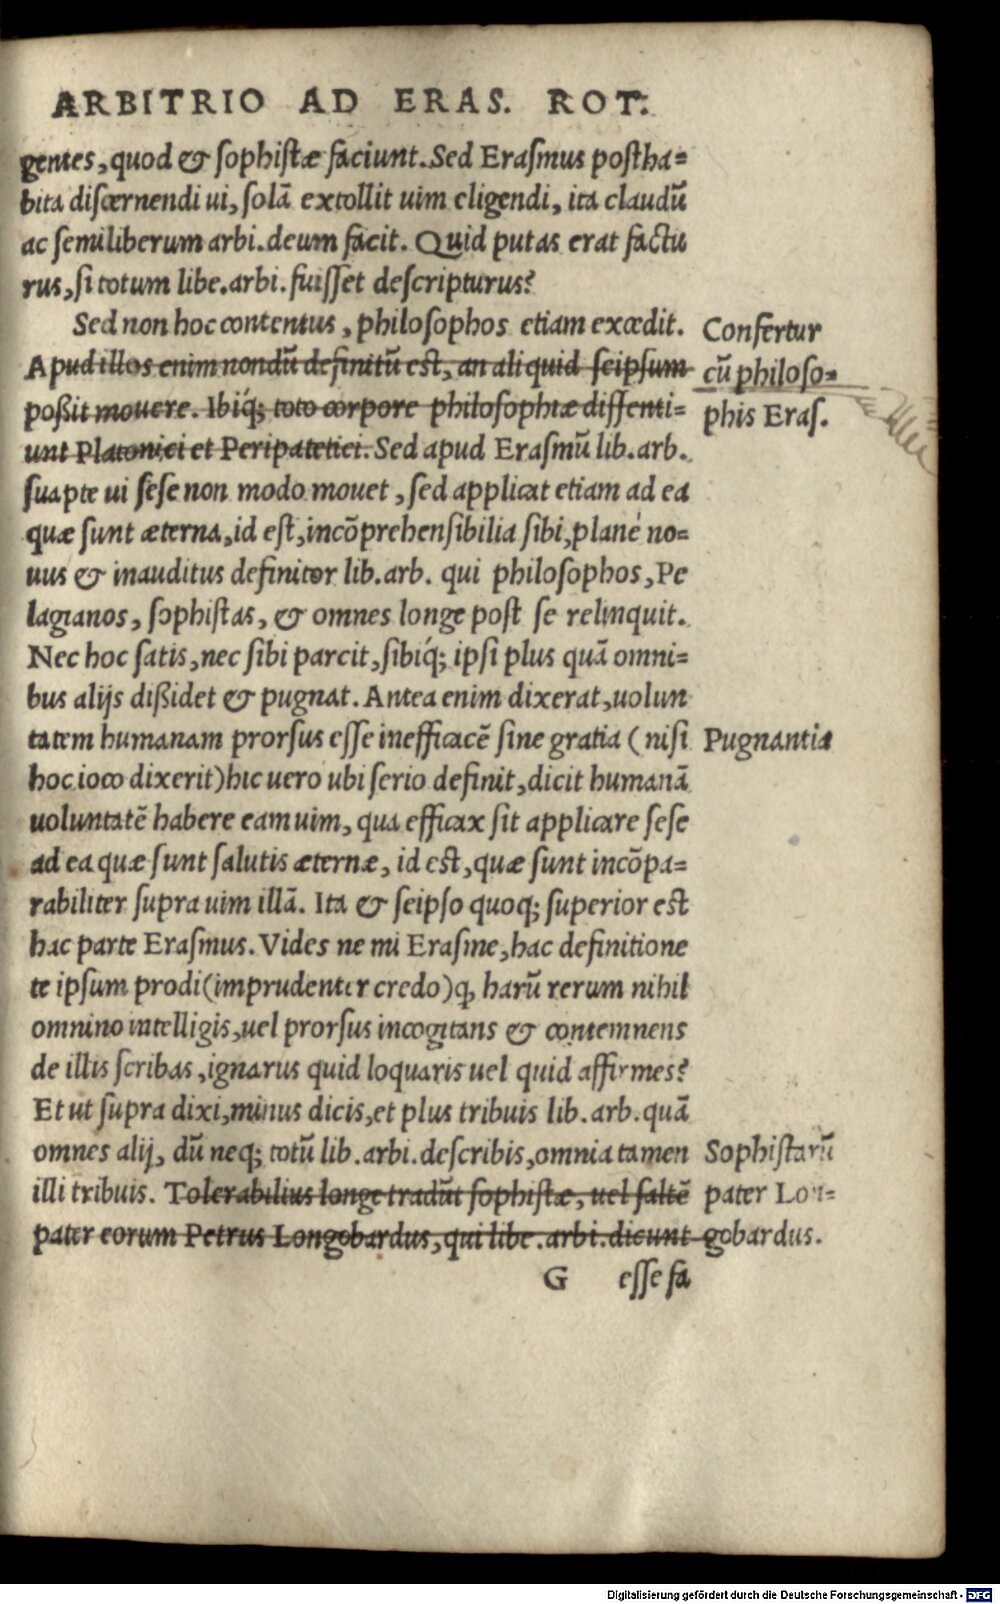 ARBITRIO AD ERAS. ROT.
gentes, quod & sophistæ faciunt. Sed Erasmus postha=
bita discernendi ui, solā extollit uim eligendi, ita claudū
ac semiliberum arbi. deum facit. Quid putas erat factu
rus, si totum libe. arbi. fuisset descripturus?
Sed non hoc contentus, philosophos etiam excedit.
Confertur
Apud illos enim nondū definitū est, an aliquid seipsum
cū philoso=
poßit mouere. Ibiq́; toto corpore philosophiæ dissenti=
phis Eras.
unt Platonici et Peripatetici. Sed apud Erasmū lib. arb.
suapte ui sese non modo mouet, sed applicat etiam ad ea
quæ sunt æterna, id est, incōprehensibilia sibi, planè no=
uus & inauditus definitor lib. arb. qui philosophos, Pe
lagianos, sophistas, & omnes longe post se relinquit.
Nec hoc satis, nec sibi parcit, sibiq́; ipsi plus quā omni=
bus alijs dißidet & pugnat. Antea enim dixerat, uolun
tatem humanam prorsus esse inefficacē sine gratia (nisi
Pugnantia
hoc ioco dixerit) hic uero ubi serio definit, dicit humanā
uoluntatē habere eam uim, qua efficax sit applicare sese
ad ea quæ sunt salutis æternæ, id est, quæ sunt incōpa=
rabiliter supra uim illā. Ita & seipso quoq; superior est
hac parte Erasmus. Vides ne mi Erasme, hac definitione
te ipsum prodi (imprudenter credo) ꝙ harū rerum nihil
omnino intelligis, uel prorsus incogitans & contemnens
de illis scribas, ignarus quid loquaris uel quid affirmes?
Et ut supra dixi, minus dicis, et plus tribuis lib. arb. quā
omnes alij, dū neq; totū lib. arbi. describis, omnia tamen
Sophistarū
illi tribuis. Tolerabilius longe tradūt sophistæ, uel saltē
pater Lon=
pater eorum Petrus Longobardus, qui libe. arbi. dicunt
gobardus.
G esse fa
Digitalisierung gefördert durch die Deutsche Forschungsgemeinschaft - DFG